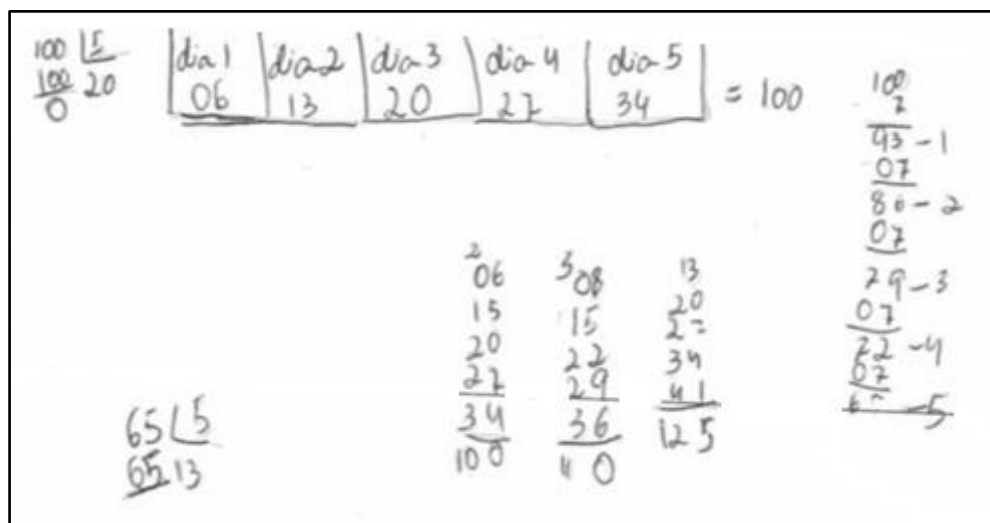 100 | 5
100 20
0
dia 1 dia 2 dia 3 dia 4 dia 5
06 13 20 27 34 = 100
100
7
93 - 1
07
86 - 2
07
79 - 3
07
72 - 4
07
- 5
2
06
15
20
27
34
100
3
08
15
22
29
36
110
13
20
27
34
41
125
65 | 5
65 13